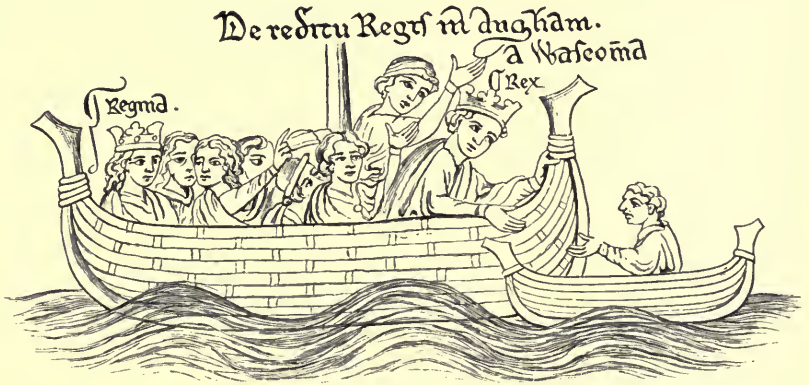 De reditu Regis in angliam.
a Wasconia
Rex
Regina.